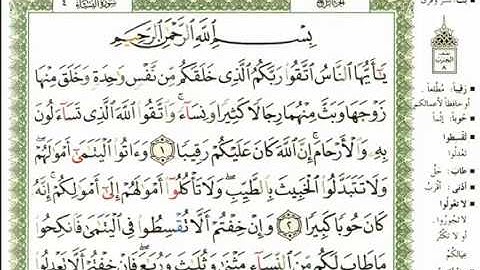 سورة النساء ٤
الجزء الرابع
بِسْمِ اللَّهِ الرَّحْمَٰنِ الرَّحِيمِ
يَا أَيُّهَا النَّاسُ اتَّقُوا رَبَّكُمُ الَّذِي خَلَقَكُم مِّن نَّفْسٍ وَاحِدَةٍ وَخَلَقَ مِنْهَا
زَوْجَهَا وَبَثَّ مِنْهُمَا رِجَالًا كَثِيرًا وَنِسَاءً ۚ وَاتَّقُوا اللَّهَ الَّذِي تَسَاءَلُونَ
بِهِ وَالْأَرْحَامَ ۚ إِنَّ اللَّهَ كَانَ عَلَيْكُمْ رَقِيبًا ١ وَآتُوا الْيَتَامَىٰ أَمْوَالَهُمْ ۖ
وَلَا تَتَبَدَّلُوا الْخَبِيثَ بِالطَّيِّبِ ۖ وَلَا تَأْكُلُوا أَمْوَالَهُمْ إِلَىٰ أَمْوَالِكُمْ ۚ إِنَّهُ
كَانَ حُوبًا كَبِيرًا ٢ وَإِنْ خِفْتُمْ أَلَّا تُقْسِطُوا فِي الْيَتَامَىٰ فَانكِحُوا
مَا طَابَ لَكُم مِّنَ النِّسَاءِ مَثْنَىٰ وَثُلَاثَ وَرُبَاعَ ۖ فَإِنْ خِفْتُمْ أَلَّا تَعْدِلُوا
رَقِيباً: مُطَّلِعاً
أو حافظاً لأعمالكم
حُوباً: إثماً
تُقْسِطُوا
تَعْدِلُوا
طاب: حلّ
أدنى: أقرب
تعولوا